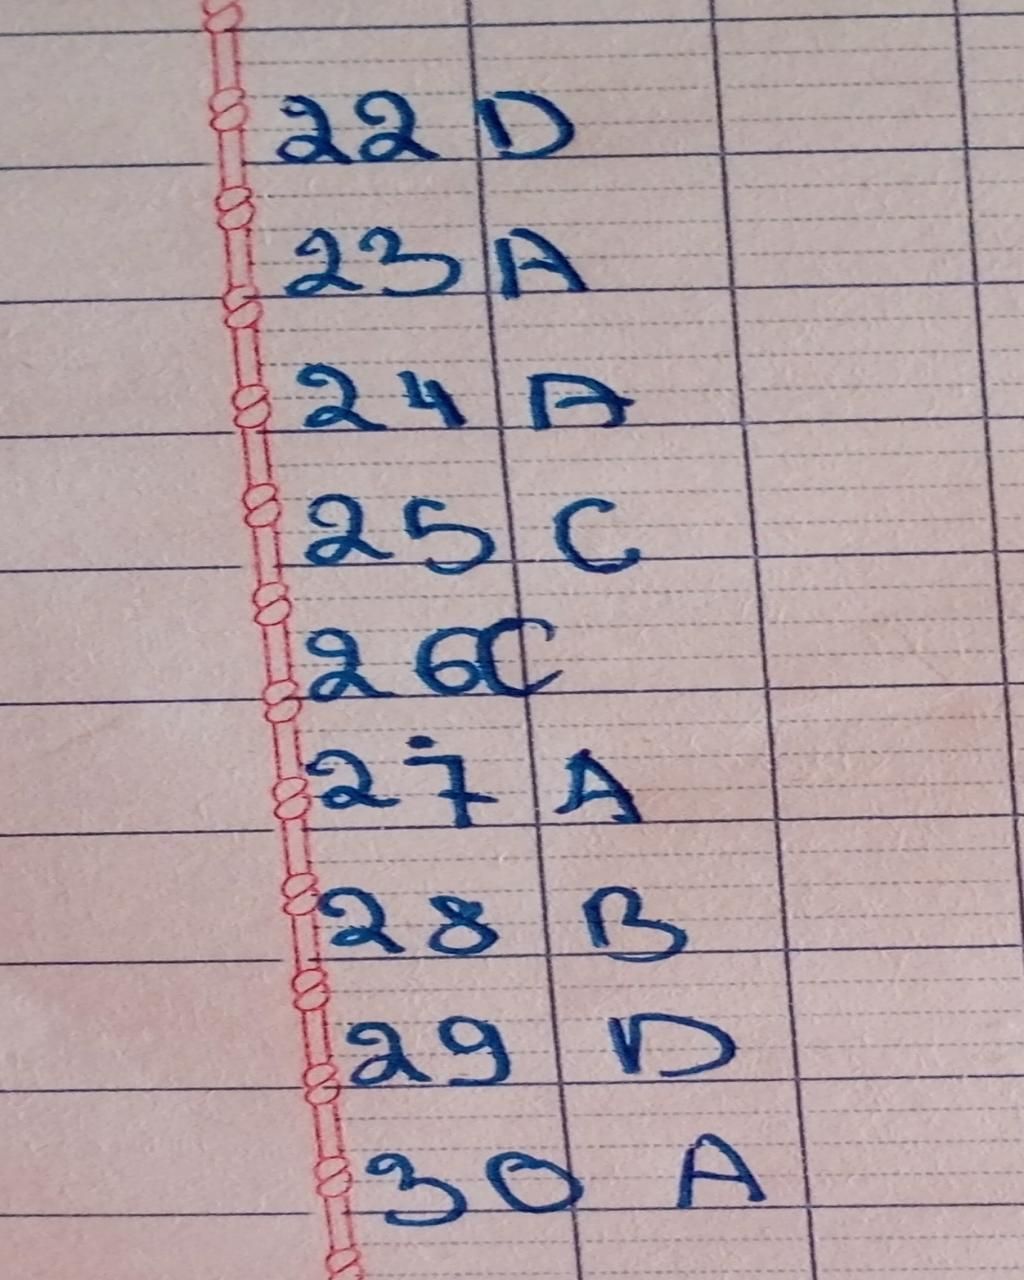 22 D
23 A
24 A
25 C
26 C
27 A
28 B
29 D
30 A